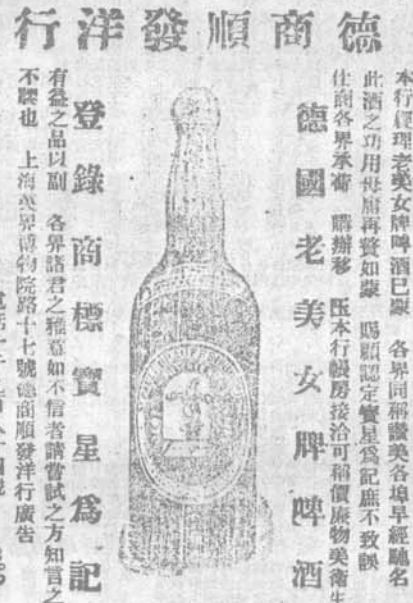 德商順發洋行
本行經理老美女牌啤酒已蒙 各界同稱讚美各埠早經馳名
此酒之功用毋庸再贅如蒙 賜顧認定寶星為記庶不致誤
仕商各界承荷 購辦移 玉本行帳房接洽可稱價廉物美衛生
德國老美女牌啤酒
登錄商標寶星為記
有益之品以副 各界諸君之雅意如不信者請嘗試之方知言之
不謬也 上海英界博物院路十七號德商順發洋行廣告